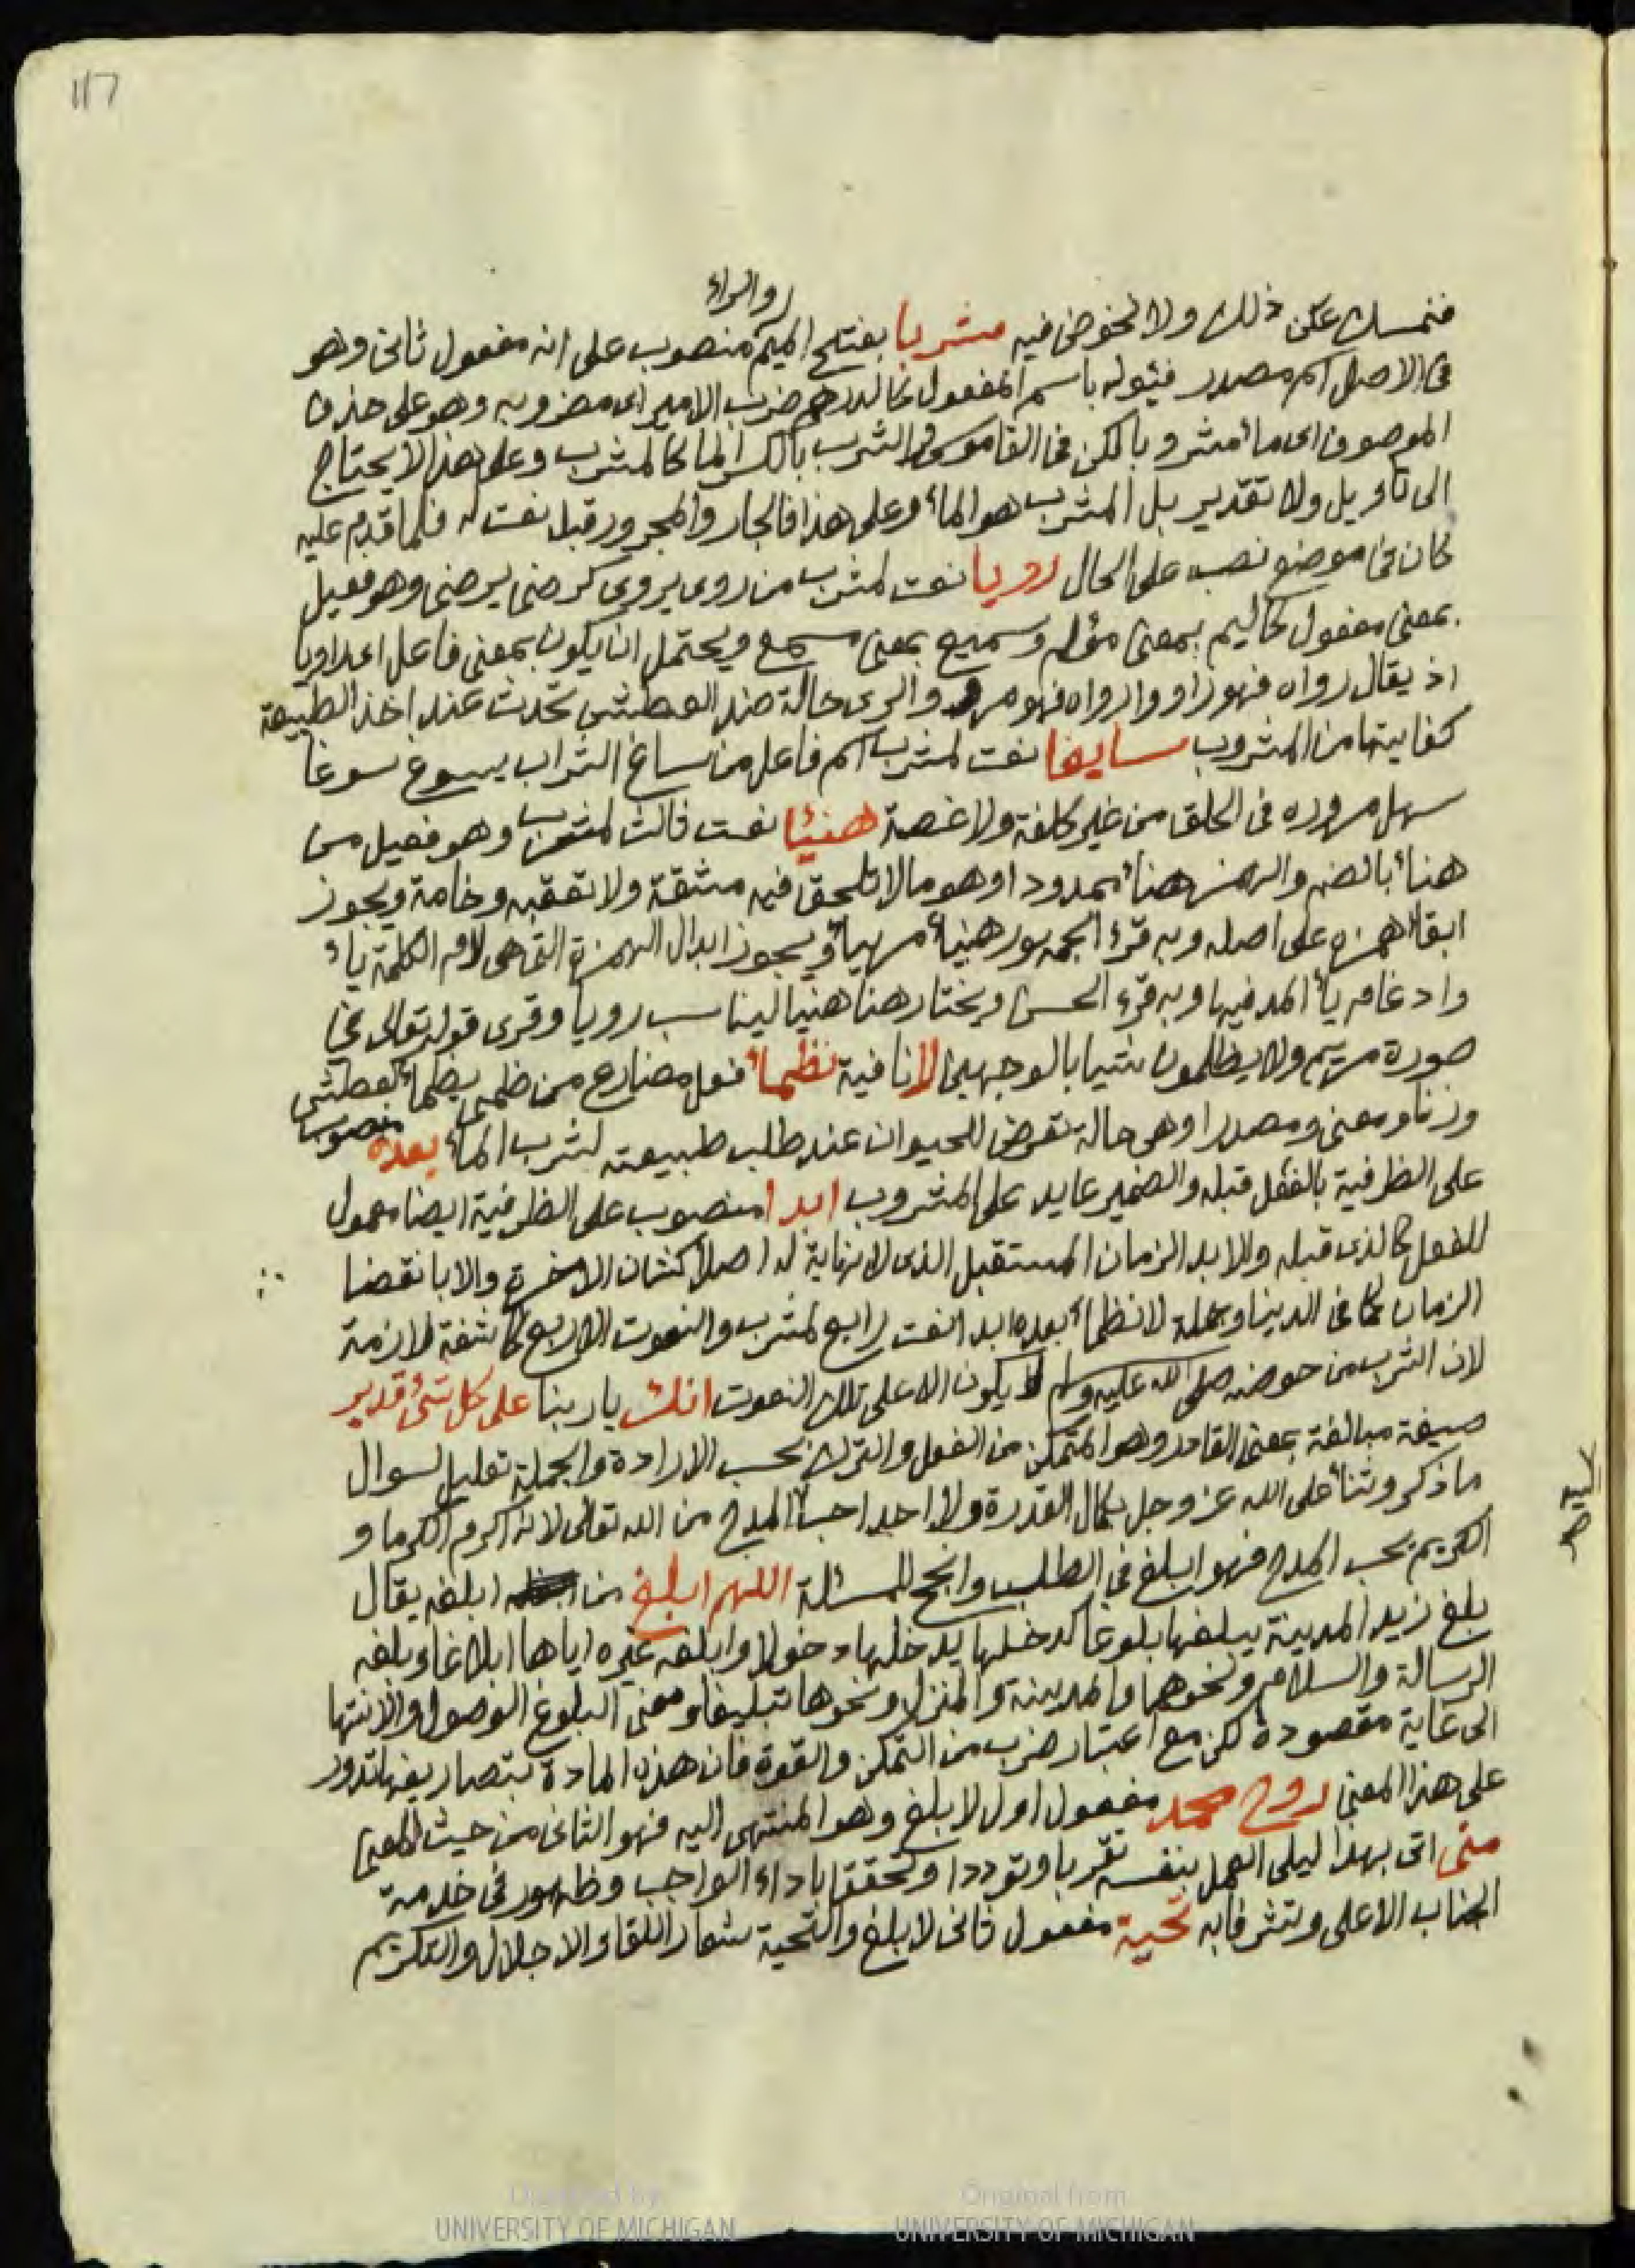 117
والراء
فنمسك عن ذلك ولا نخوض فيه مشربا بفتح الميم منصوب على انه مفعول ثانى وهو
فى الاصل اسم مصدر فيئوله باسم المفعول كالدرهم ضرب الامير اى مضروبه وهو على حذف
الموصوف اى ماأ مشروبا لكن فى القاموس والشرب بالكسر الما كالمشرب وعلى هذا لا يحتاج
الى تاويل ولا تقدير بل المشرب هو الماأ وعلى هذا فالجار والمجرور قبل نعت له فلما قدم عليه
كان فى موضع نصب على الحال رويا نعت لمشرب من روى يروى كرضى يرضى وهو فعيل
بمعنى مفعول كاليم بمعنى مؤلم وسميع بمعنى مسمع ويحتمل ان يكون بمعنى فاعل اى راويا
اذ يقال رواه فهو راو وارواه فهو مرو والرى حالة ضد العطش تحدث عند اخذ الطبيعة
كفايتها من المشروب سايغا نعت لمشرب اسم فاعل من ساغ الشراب يسوغ سوغا
سهل مروره فى الحلق من غير كلفة ولا غصة هنيئا نعت ثالث لمشرب وهو فعيل من
هنأ بالضم والهمز هنأ ممدودا وهو مالا تلحق فيه مشقة ولا تعقبه وخامة ويجوز
ابقاأ همزه على اصله وبه قرء الجمهور هنيأ مريأ ويجوز ابدال الهمزة التى هى لام الكلمة ياأ
وادغام ياأ المد فيها وبه قرء الحسن ويختار هنا هنيا ليناسب رويا وقرى قوله تعالى فى
صورة مريم ولا يظلمون شيا بالوجهين لا نافية نظمأ فعل مضارع من ظمى يظمأ كعطش
وزنا ومعنى ومصدرا وهى حالة تعرض للحيوان عند طلب طبيعته لشرب الماأ بعده منصوب
على الظرفية بالفعل قبله والضمير عايد على المشروب ابدا منصوب على الظرفية ايضا معمول
للفعل كالذى قبله والابد الزمان المستقبل الذى لا نهاية له اصلا كشان الاخرة والا بانقضا
الزمان كما فى الدينا وجملة لا نظمأ بعده ابدا نعت رابع لمشرب والنعوت الاربع كاشفة لازمة
لان الشرب من حوضه صلى الله عليه وسلم لا يكون الا على تلك النعوت انك يا ربنا على كل شئ قدير
صيغة مبالغة بمعنى القادر وهو المتمكن من الفعل والترك بحسب الارادة والجملة تعليل لسوال
ما ذكر وثنأ على الله عز وجل بكمال القدرة ولا احد احب اليه المدح من الله تعالى لانه اكرم الكرما و
الكريم يحب المدح فهو ابلغ فى الطلب وانجح للمسئلة اللهم ابلغ من ابلغه يقال
بلغ زيد المدينة يبلغها بلوغا كدخلها يدخلها دخولا وابلغه غيره اياها ابلاغا وبلغه
الرسالة والسلام ونحوهما والمدينة والمنزل ونحوها تبليغا ومعنى البلوغ الوصول والانتها
الى غاية مقصودة لكن مع اعتبار ضرب من التمكن والقوة فان هذه المادة بتصاريفها تدور
على هذا المعنى روح محمد مفعول اول لابلغ وهو المنتهى اليه فهو الثانى من حيث المعنى
منى اتى بهذا ليلى العمل بنفسه تقربا وتوددا وتحققا باداء الواجب وظهور فى خدمة
الجناب الاعلى وتشرفا به تحية مفعول ثانى لابلغ والتحية شعار اللقاء والاجلال والتكريم
Digitized by
UNIVERSITY OF MICHIGAN
Original from
UNIVERSITY OF MICHIGAN